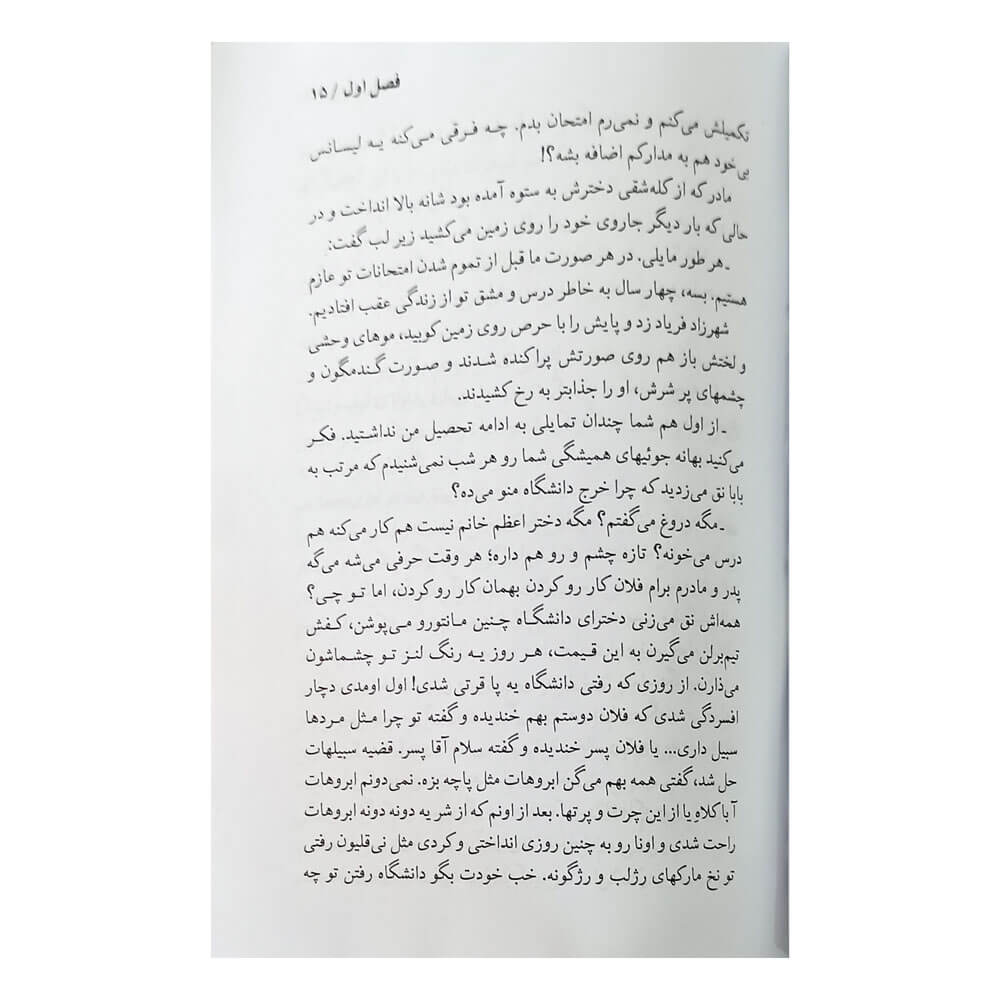 فصل اول / ۱۵
تکمیلش می‌کنم و نمی‌رم امتحان بدم. چه فرقی می‌کنه یه لیسانس
بی‌خود هم به مدارکم اضافه بشه؟!
مادر که از کله‌شقی دخترش به ستوه آمده بود شانه بالا انداخت و در
حالی که بار دیگر جاروی خود را روی زمین می‌کشید زیر لب گفت:
ـ هر طور مایلی. در هر صورت ما قبل از تموم شدن امتحانات تو عازم
هستیم. بسه، چهار سال به خاطر درس و مشق تو از زندگی عقب افتادیم.
شهرزاد فریاد زد و پایش را با حرص روی زمین کوبید، موهای وحشی
و لختش باز هم روی صورتش پراکنده شدند و صورت گندمگون و
چشمهای پر شرش، او را جذابتر به رخ کشیدند.
ـ از اول هم شما چندان تمایلی به ادامه تحصیل من نداشتید. فکر
می‌کنید بهانه جوئیهای همیشگی شما رو هر شب نمی‌شنیدم که مرتب به
بابا نق می‌زدید که چرا خرج دانشگاه منو می‌ده؟
ـ مگه دروغ می‌گفتم؟ مگه دختر اعظم خانم نیست هم کار می‌کنه هم
درس می‌خونه؟ تازه چشم و رو هم داره؛ هر وقت حرفی می‌شه می‌گه
پدر و مادرم برام فلان کار رو کردن بهمان کار رو کردن، اما تو چی؟
همه‌اش نق می‌زنی دخترای دانشگاه چنین مانتورو می‌پوشن، کفش
تیم‌برلن می‌گیرن به این قیمت، هر روز یه رنگ لنز تو چشماشون
می‌ذارن. از روزی که رفتی دانشگاه یه پا قرتی شدی! اول اومدی دچار
افسردگی شدی که فلان دوستم بهم خندیده و گفته تو چرا مثل مردها
سبیل داری... یا فلان پسر خندیده و گفته سلام آقا پسر. قضیه سبیلهات
حل شد، گفتی همه بهم می‌گن ابروهات مثل پاچه بزه. نمی‌دونم ابروهات
آباکلاوِ یا از این چرت و پرتها. بعد از اونم که از شر یه دونه دونه ابروهات
راحت شدی و اونا رو به چنین روزی انداختی و کردی مثل نی‌قلیون رفتی
تو نخ مارکهای رژلب و رژگونه. خب خودت بگو دانشگاه رفتن تو چه